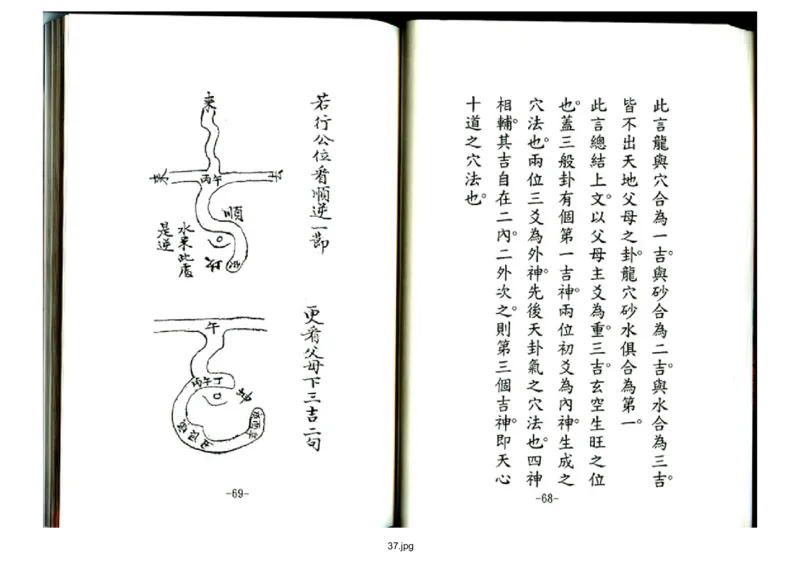 此言龍與穴合為一吉。與砂合為二吉。與水合為三吉。
皆不出天地父母之卦。龍穴砂水俱合為第一。
此言總結上文。以父母主爻為重。三吉。玄空生旺之位
也。蓋三般卦有個第一吉神。兩位初爻為內神。生成之
穴法也。兩位三爻為外神。先後天卦氣之穴法也。四神
相輔。其吉自在二內。二外次之。則第三個吉神。即天心
十道之穴法也。
-68-
若行公位看順逆一節
来
丙午
順
水来此處
是逆
更看父母下三吉二句
午
丙午丁
-69-
37.jpg